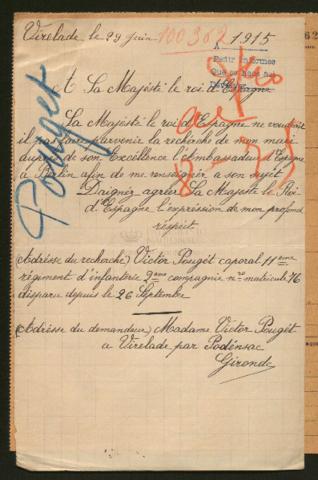 Virelade le 29 Juin 1915
100362
Pedir informes
A Sa Majesté le roi d'Espagne
Sa Majesté le roi d'Espagne ne voudrait
il pas faire parvenir la recherche de mon mari
auprès de son Excellence l'Ambassadeur d'Espagne
à Berlin afin de me renseigner a son sujet
Daignez agréer Sa Majesté le Roi
d'Espagne l'expression de mon profond
respect.
Pouget
(Adresse du recherché) Victor Pouget caporal 11eme
régiment d'infanterie 2eme compagnie no matricule 76
disparu depuis le 26 Septembre
(Adresse du demandeur) Madame Victor Pouget
a Virelade par Podensac
Gironde